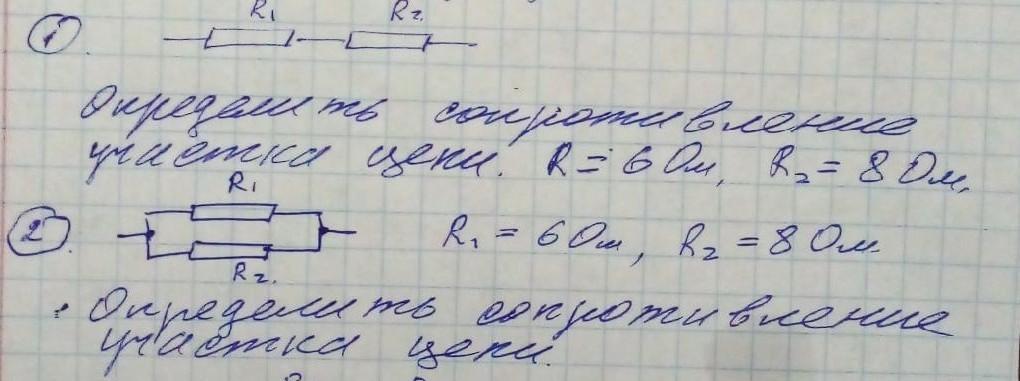 R₁ R₂.
①.
Определить сопротивление
участка цепи. R = 6 Ом, R₂ = 8 Ом.
R₁
②. R₁ = 6 Ом, R₂ = 8 Ом.
R₂.
Определить сопротивление
участка цепи.